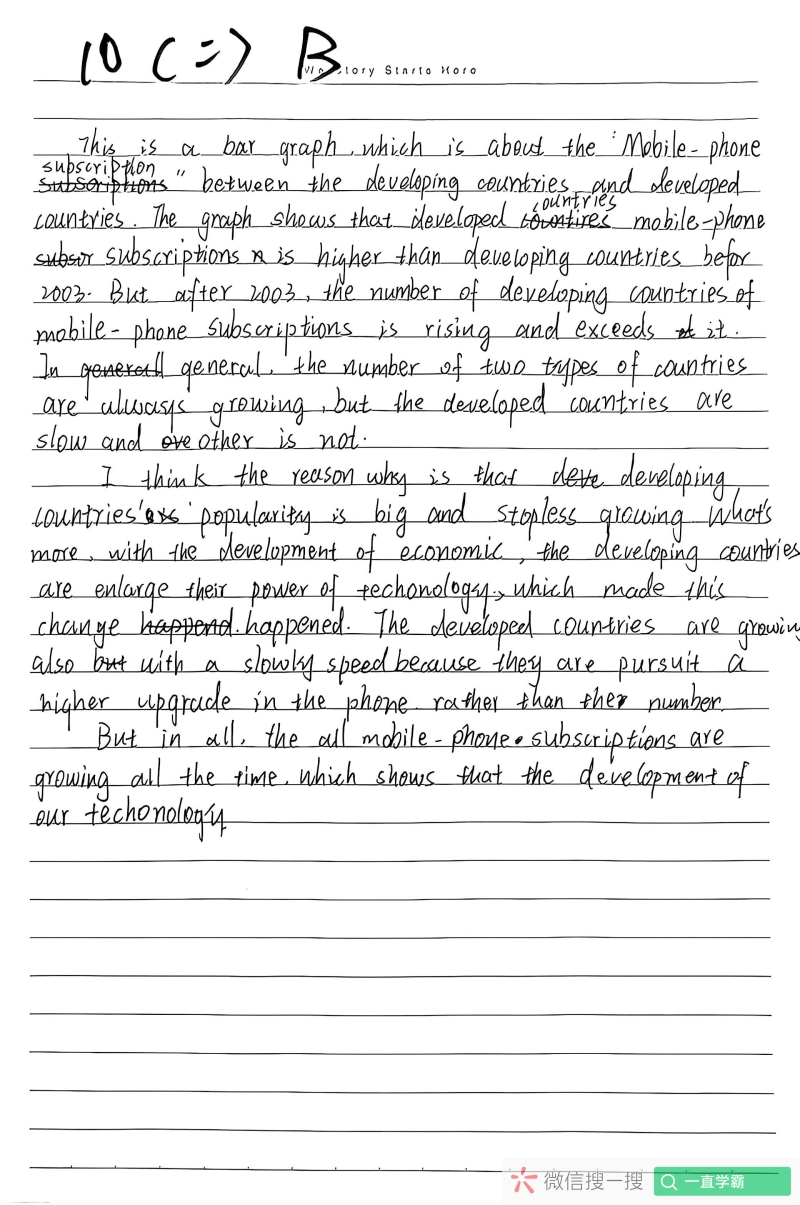 10 (二) B
Wo Story Starts Hero
This is a bar graph, which is about the "Mobile-phone
subscription
subscriptions" between the developing countries and developed
countries
countries. The graph shows that developed countires mobile-phone
subscr subscriptions is higher than developing countries befor
2003. But after 2003, the number of developing countries of
mobile-phone subscriptions is rising and exceeds it.
In generall general, the number of two types of countries
are always growing, but the developed countries are
slow and other is not.
I think the reason why is that deve developing
countries' popularity is big and stopless growing What's
more, with the development of economic, the developing countries
are enlarge their power of techonology, which made this
change happend. happened. The developed countries are growing
also but with a slowly speed because they are pursuit a
higher upgrade in the phone rather than the number.
But in all, the all mobile-phone subscriptions are
growing all the time, which shows that the development of
our techonology
微信搜一搜 一直学霸